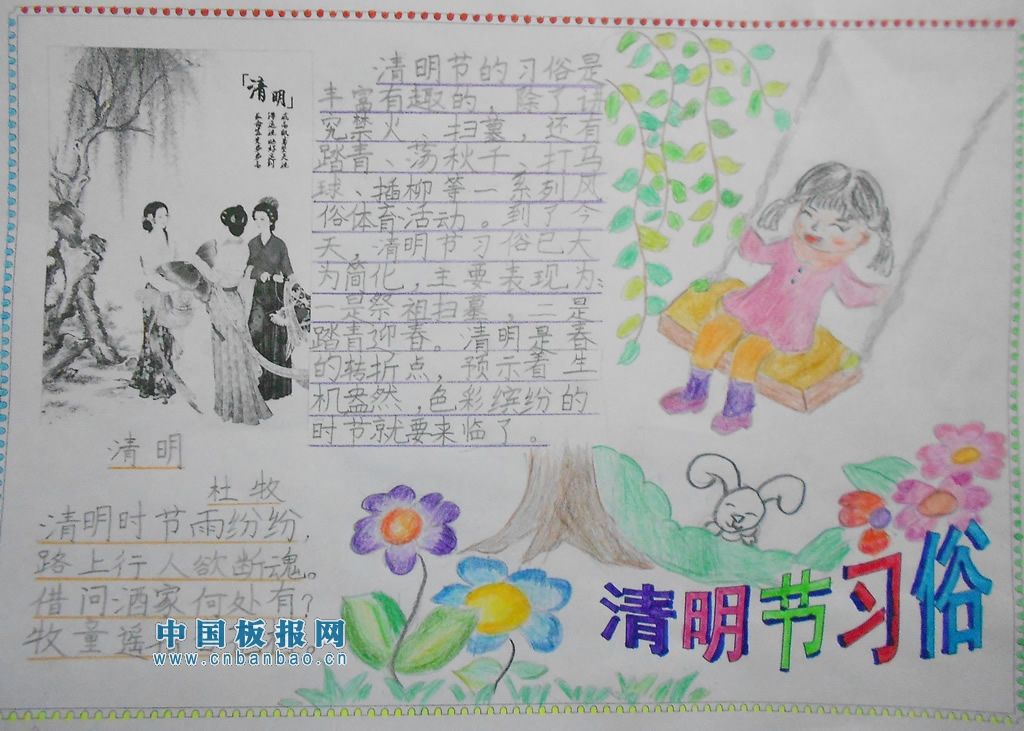 「清明」
清明节的习俗是
丰富有趣的，除了讲
究禁火、扫墓，还有
踏青、荡秋千、打马
球、插柳等一系列风
俗体育活动。到了今
天，清明节习俗已大
为简化，主要表现为：
一是祭祖扫墓，二是
踏青迎春。清明是春
的转折点，预示着生
机盎然，色彩缤纷的
时节就要来临了。
清明
杜牧
清明时节雨纷纷，
路上行人欲断魂。
借问酒家何处有？
牧童遥
中国板报网
www.cnbanbao.cn
清明节习俗